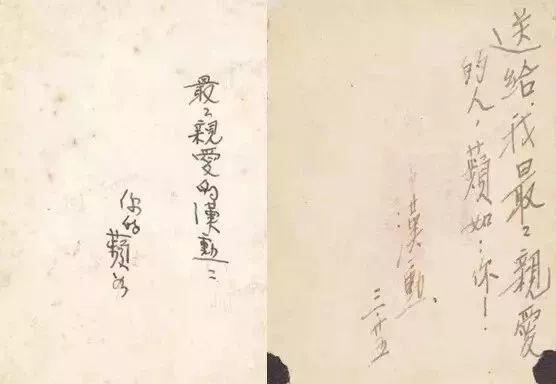 最〻親愛的漢勳：
你的蘋如
送給，我最〻親愛
的人，蘋如：你！
漢勳、
三、廿五